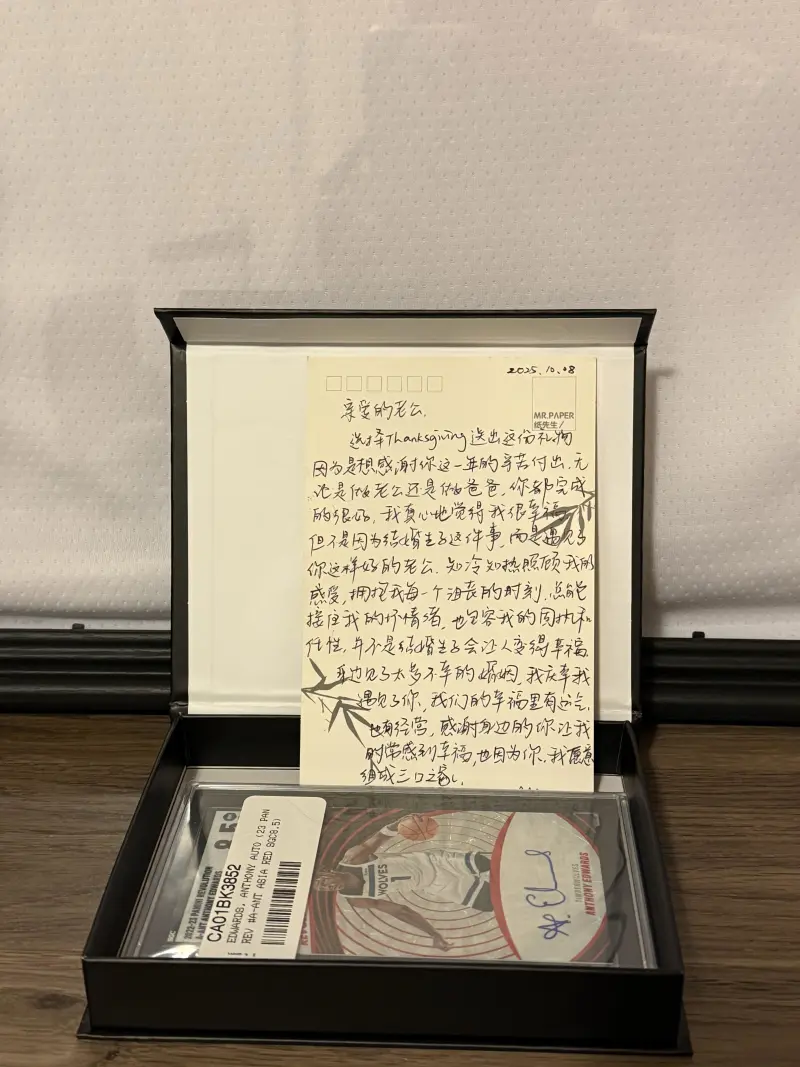 2025.10.08
MR.PAPER
纸先生/
亲爱的老公.
选择Thanksgiving送出这份礼物
因为是想感谢你这一年的辛苦付出.无
论是做老公还是做爸爸,你都完成
的很好,我真心地觉得我很幸福
但不是因为结婚生子这件事,而是遇见了
你这样好的老公.知冷知热照顾我的
感受,拥抱我每一个沮丧的时刻,总能
接住我的坏情绪,也包容我的固执和
任性,并不是结婚生子会让人变得幸福
身边见了太多不幸的婚姻,我庆幸我
遇见了你,我们的幸福里有运气.
也有经营,感谢身边的你让我
时常感到幸福,也因为你,我愿意
组成三口之家.
CA01BK3852
EDWARDS, ANTHONY AUTO (23 PAN
REV #A-ANT ASIA RED SGC8.5)
2022-23 PANINI REVOLUTION
A-ANT ANTHONY EDWARDS
WOLVES
1
ANTHONY EDWARDS